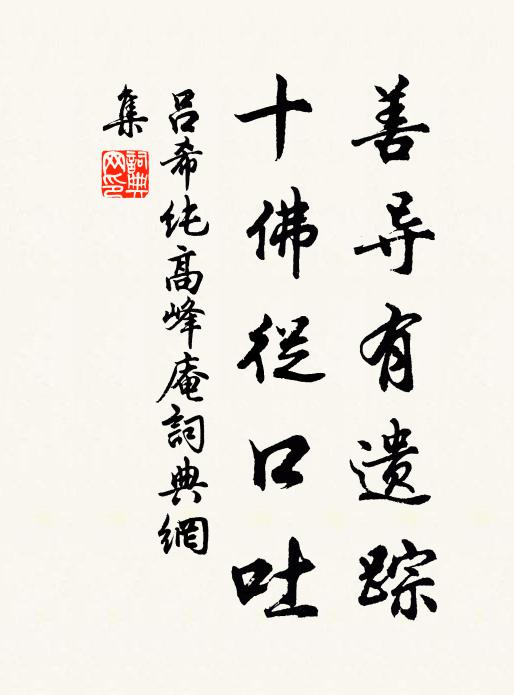 善导有遗踪
十佛從口吐
吕希纯高峰庵詞典網
集
詞典网印